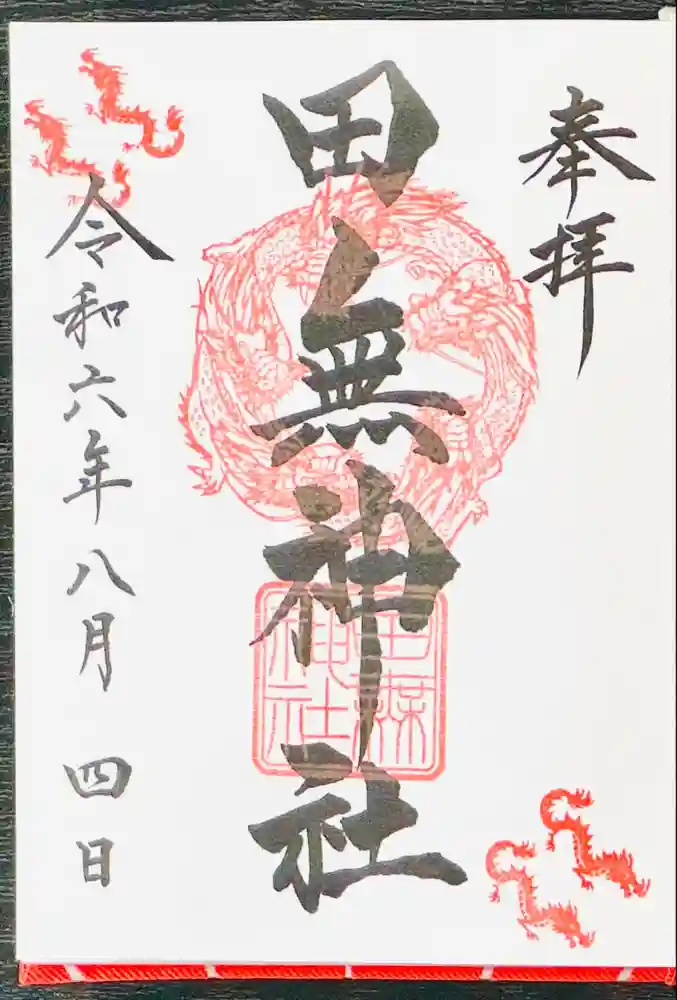 奉拝
田無神社
田無神社
令和六年八月四日